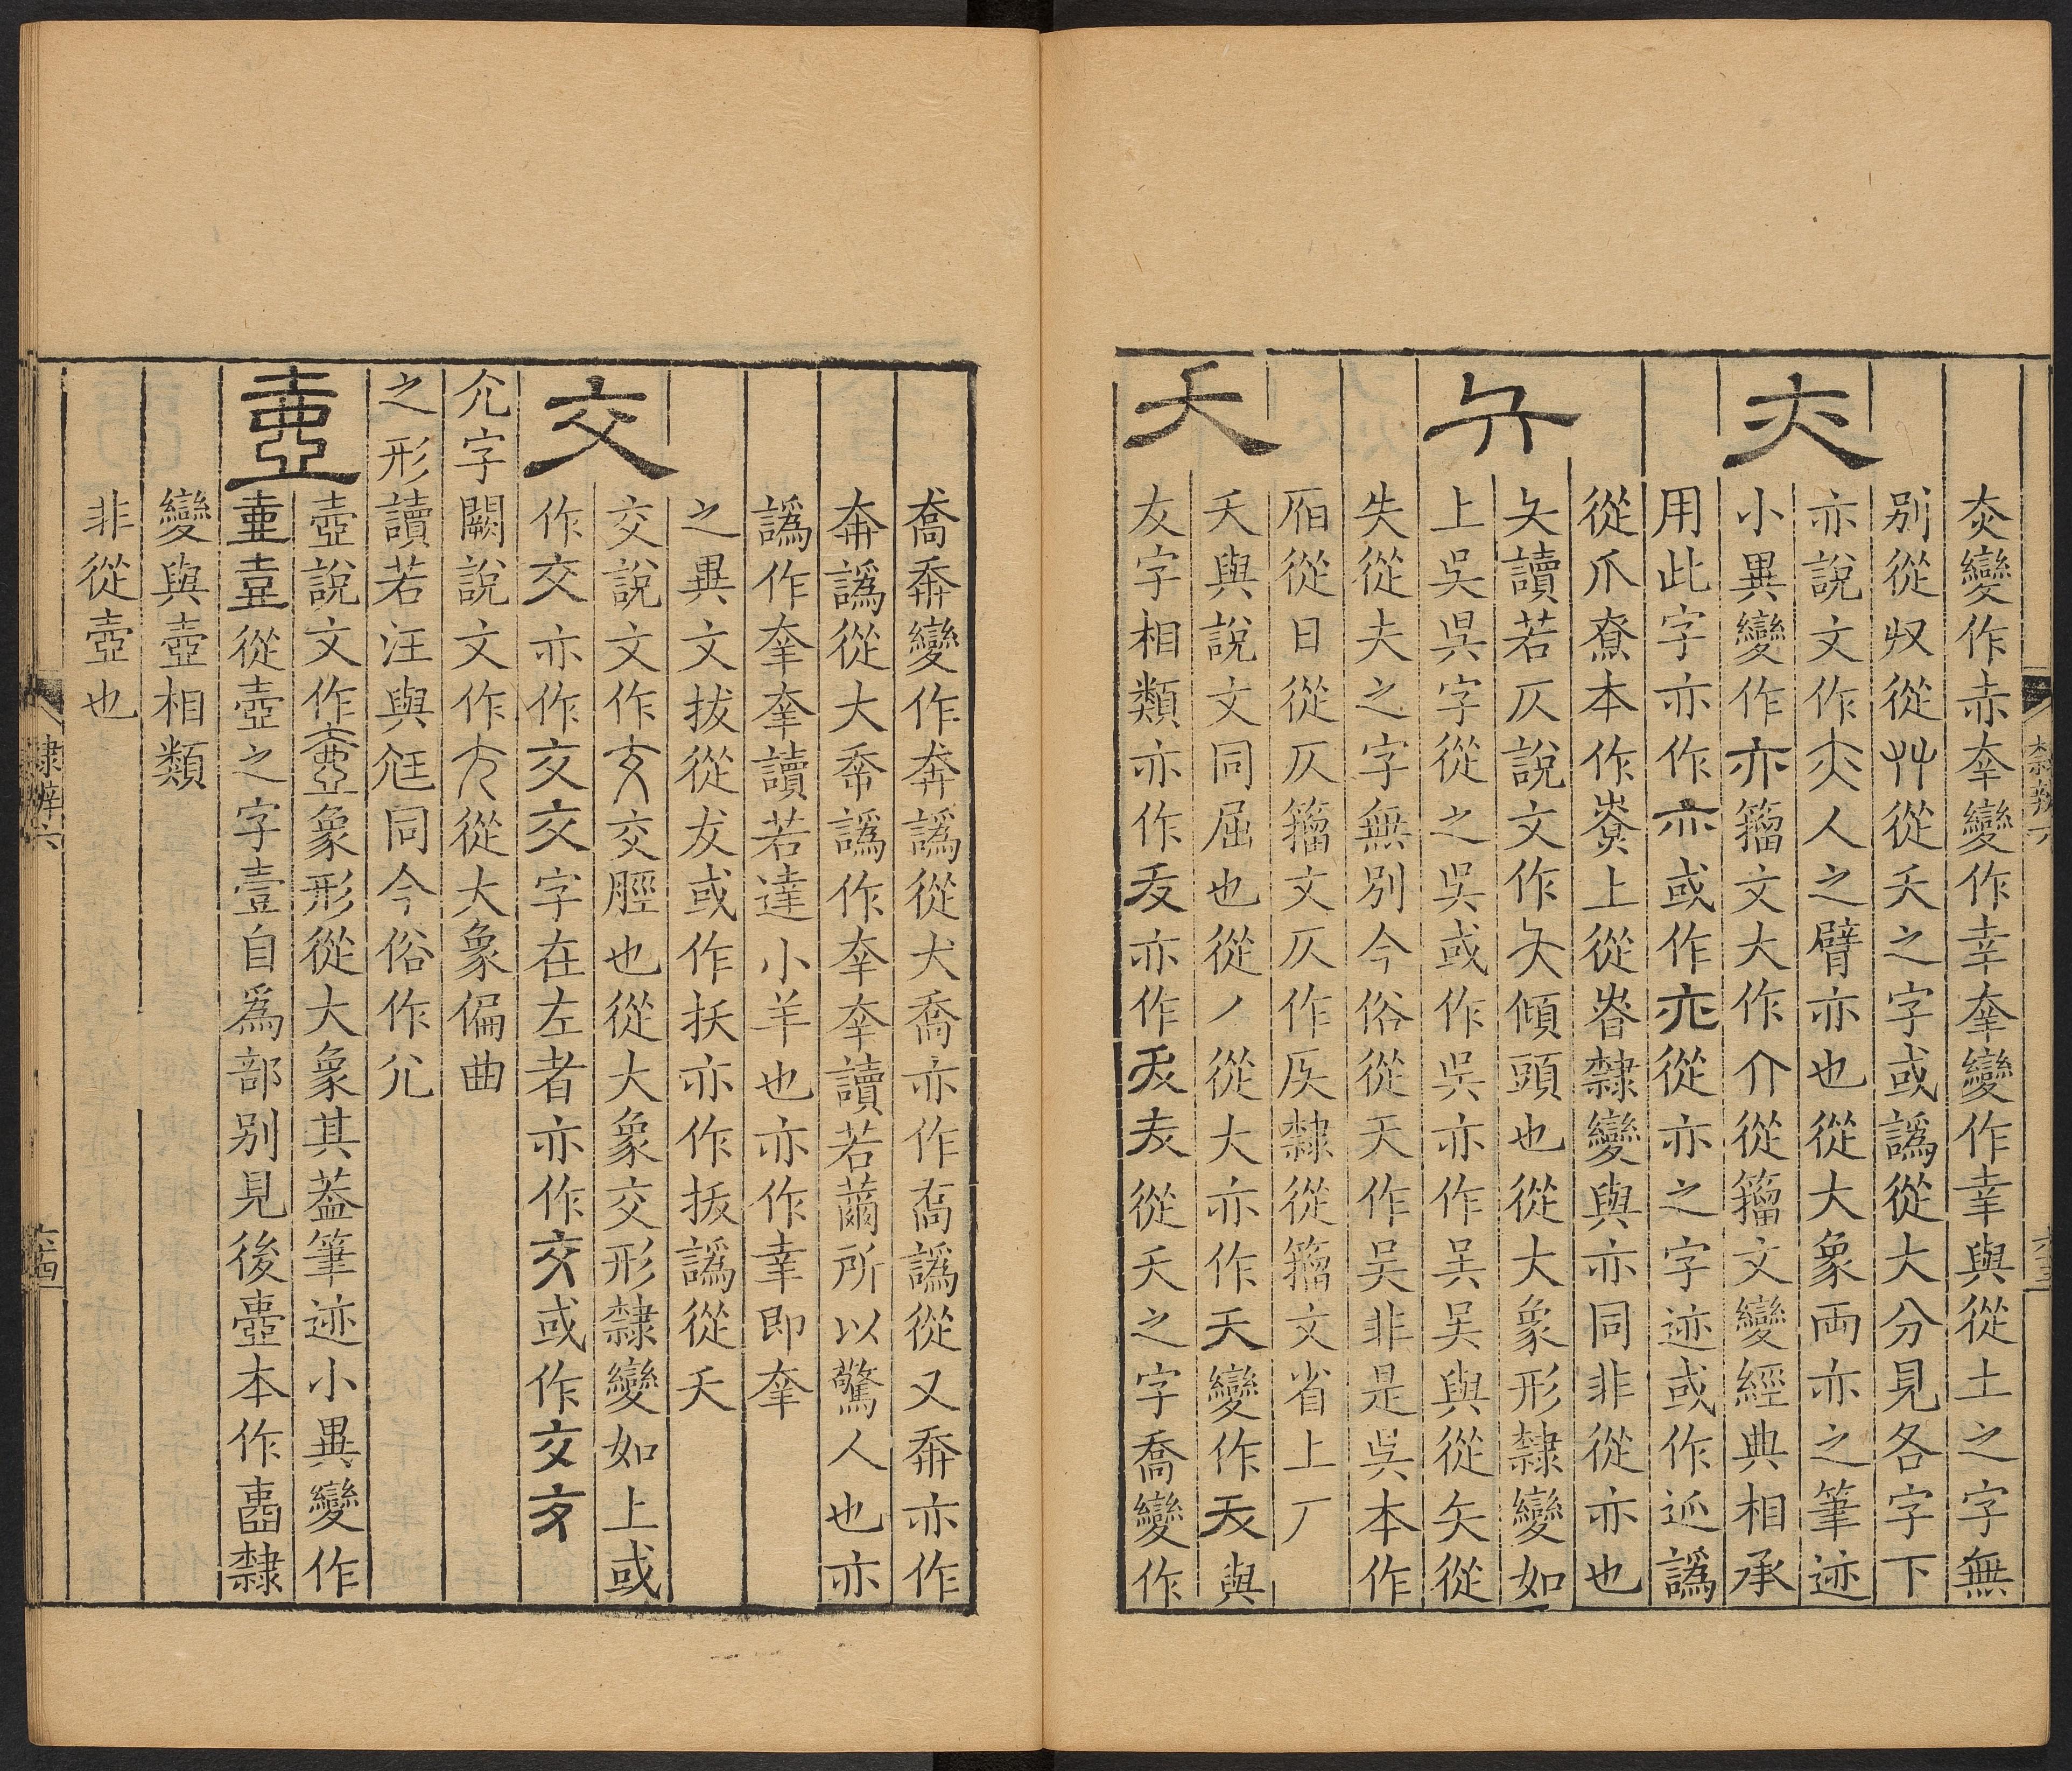 灻變作赤㚔變作幸羍變作幸與從土之字無
別從収從艸從夭之字或譌從大分見各字下
亦
亦說文作亦人之臂亦也從大象兩亦之筆迹
小異變作亦籀文大作介從籀文變經典相承
用此字亦作亦或作亦從亦之字迹或作迹譌
從爪尞本作尞上從昚隸變與亦同非從亦也
夨
夨讀若仄說文作夨傾頭也從大象形隸變如
上吳吳字從之吳或作吳亦作吴吴與從矢從
失從夫之字無別今俗從天作吴非是吳本作
𠨮從日從仄籀文仄作𠨮隸從籀文省上厂
夭
夭與說文同屈也從丿從大亦作夭變作夭與
友字相類亦作犮亦作㐲犮從夭之字喬變作
隸辨六
六十三
喬奔變作奔譌從犬喬亦作喬譌從又奔亦作
奔譌從大㚔譌作㚔㚔讀若籋所以驚人也亦
譌作羍羍讀若達小羊也亦作幸即羍
之異文拔從犮或作扷亦作拔譌從夭
交
交說文作交交脛也從大象交形隸變如上或
作交亦作交交字在左者亦作交或作交交
尣字闕說文作尣從大象偏曲
之形讀若汪與尪同今俗作尣
壺
壺說文作壺象形從大象其葢筆迹小異變作
壺壺從壺之字壹自爲部別見後壼本作壼隸
變與壺相類
非從壺也
隸辨六
六十四